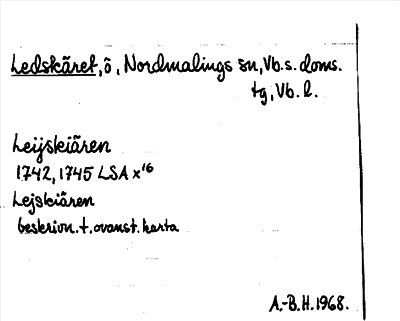 Ledskäret, ö, Nordmalings sn, Vb. s. doms.
tg, Vb. l.
Leijskiären
1742, 1745 LSA x¹⁶
Lejskiären
beskrivn. t. ovanst. karta
A.-B. H. 1968.